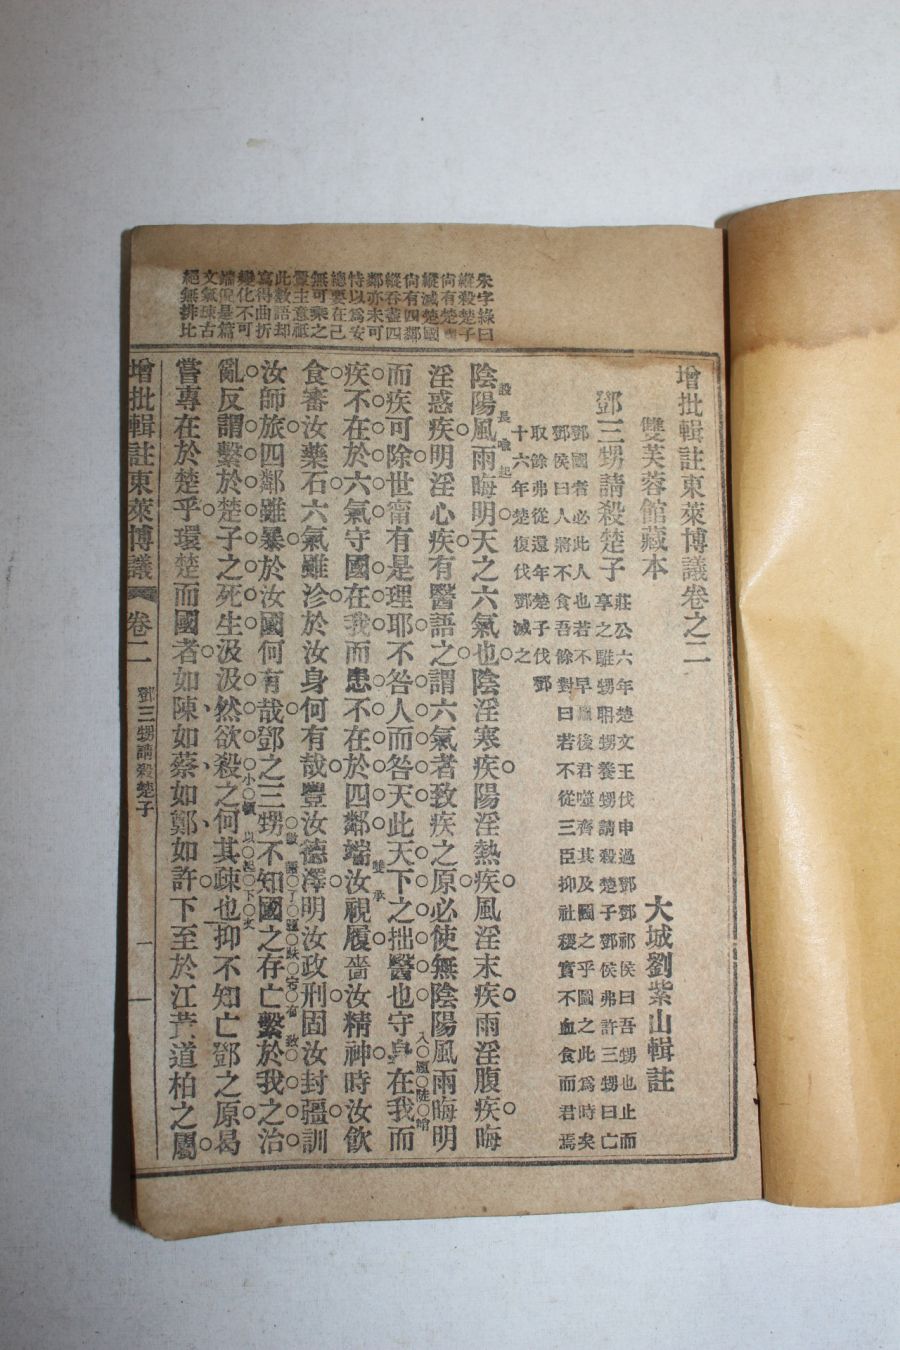 增批輯註東萊博議卷之二
雙芙蓉館藏本
大城劉紫山輯註
鄧三甥請殺楚子
莊公六年楚文王伐申過鄧鄧祁侯曰吾甥也止而
享之騅甥聃甥養甥請殺楚子鄧侯弗許三甥曰亡
鄧國者必此人也若不早圖後君噬齊其及圖之乎圖之此為時矣
鄧侯曰人將不食吾餘對曰若不從三臣抑社稷實不血食而君焉
取餘弗從還年楚子伐鄧
十六年楚復伐鄧滅之
設長喻起
陰陽風雨晦明天之六氣也陰淫寒疾陽淫熱疾風淫末疾雨淫腹疾晦
淫惑疾明淫心疾有醫語之謂六氣者致疾之原必使無陰陽風雨晦明
而疾可除世甯有是理耶不咎人而咎天此天下之拙醫也守身在我而
疾不在於六氣守國在我而患不在於四鄰端汝視履嗇汝精神時汝飲
雙承
食審汝藥石六氣雖沴於汝身何有哉豐汝德澤明汝政刑固汝封疆訓
汝師旅四鄰雖暴於汝國何有哉鄧之三甥不知國之存亡繫於我之治
亂反謂繫於楚子之死生汲汲然欲殺之何其疎也抑不知亡鄧之原曷
小頓以起下文
嘗專在於楚乎環楚而國者如陳如蔡如鄭如許下至於江黃道柏之屬
朱字綠曰
縱殺楚子
尚有楚國
縱滅楚國
尚有四鄰
縱吞盡四
鄰亦未可
特以為安
總要在己
無可乘之
釁主意祗
此數語却
寫得曲折
變化不可
端倪是篇
文氣疎古
絕無排比
增批輯註東萊博議 卷二 鄧三甥請殺楚子 一